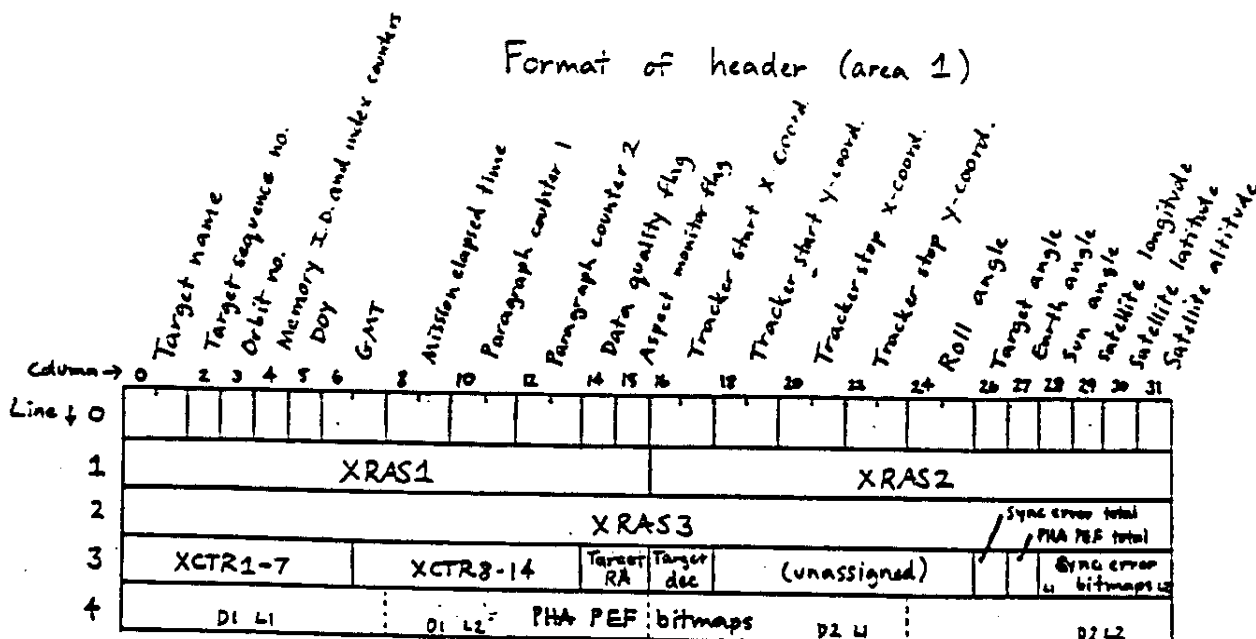 Format of header (area 1)
Target name
Target sequence no.
Orbit no.
Memory I.D. and index counters
DOY
GMT
Mission elapsed time
Paragraph counter 1
Paragraph counter 2
Data quality flag
Aspect monitor flag
Tracker start x coord.
Tracker start y-coord.
Tracker stop x-coord.
Tracker stop y-coord.
Roll angle
Target angle
Earth angle
Sun angle
Satellite longitude
Satellite latitude
Satellite altitude
Column → 0 2 3 4 5 6 8 10 12 14 15 16 18 20 22 24 26 27 28 29 30 31
Line ↓ 0
1 XRAS1 XRAS2
2 XRAS3
Sync error total
PHA PEF total
3 XCTR1-7 XCTR8-14 Target RA Target dec (unassigned) Sync error bitmaps L1 L2
4 D1 L1 D1 L2 PHA PEF bitmaps D2 L1 D2 L2